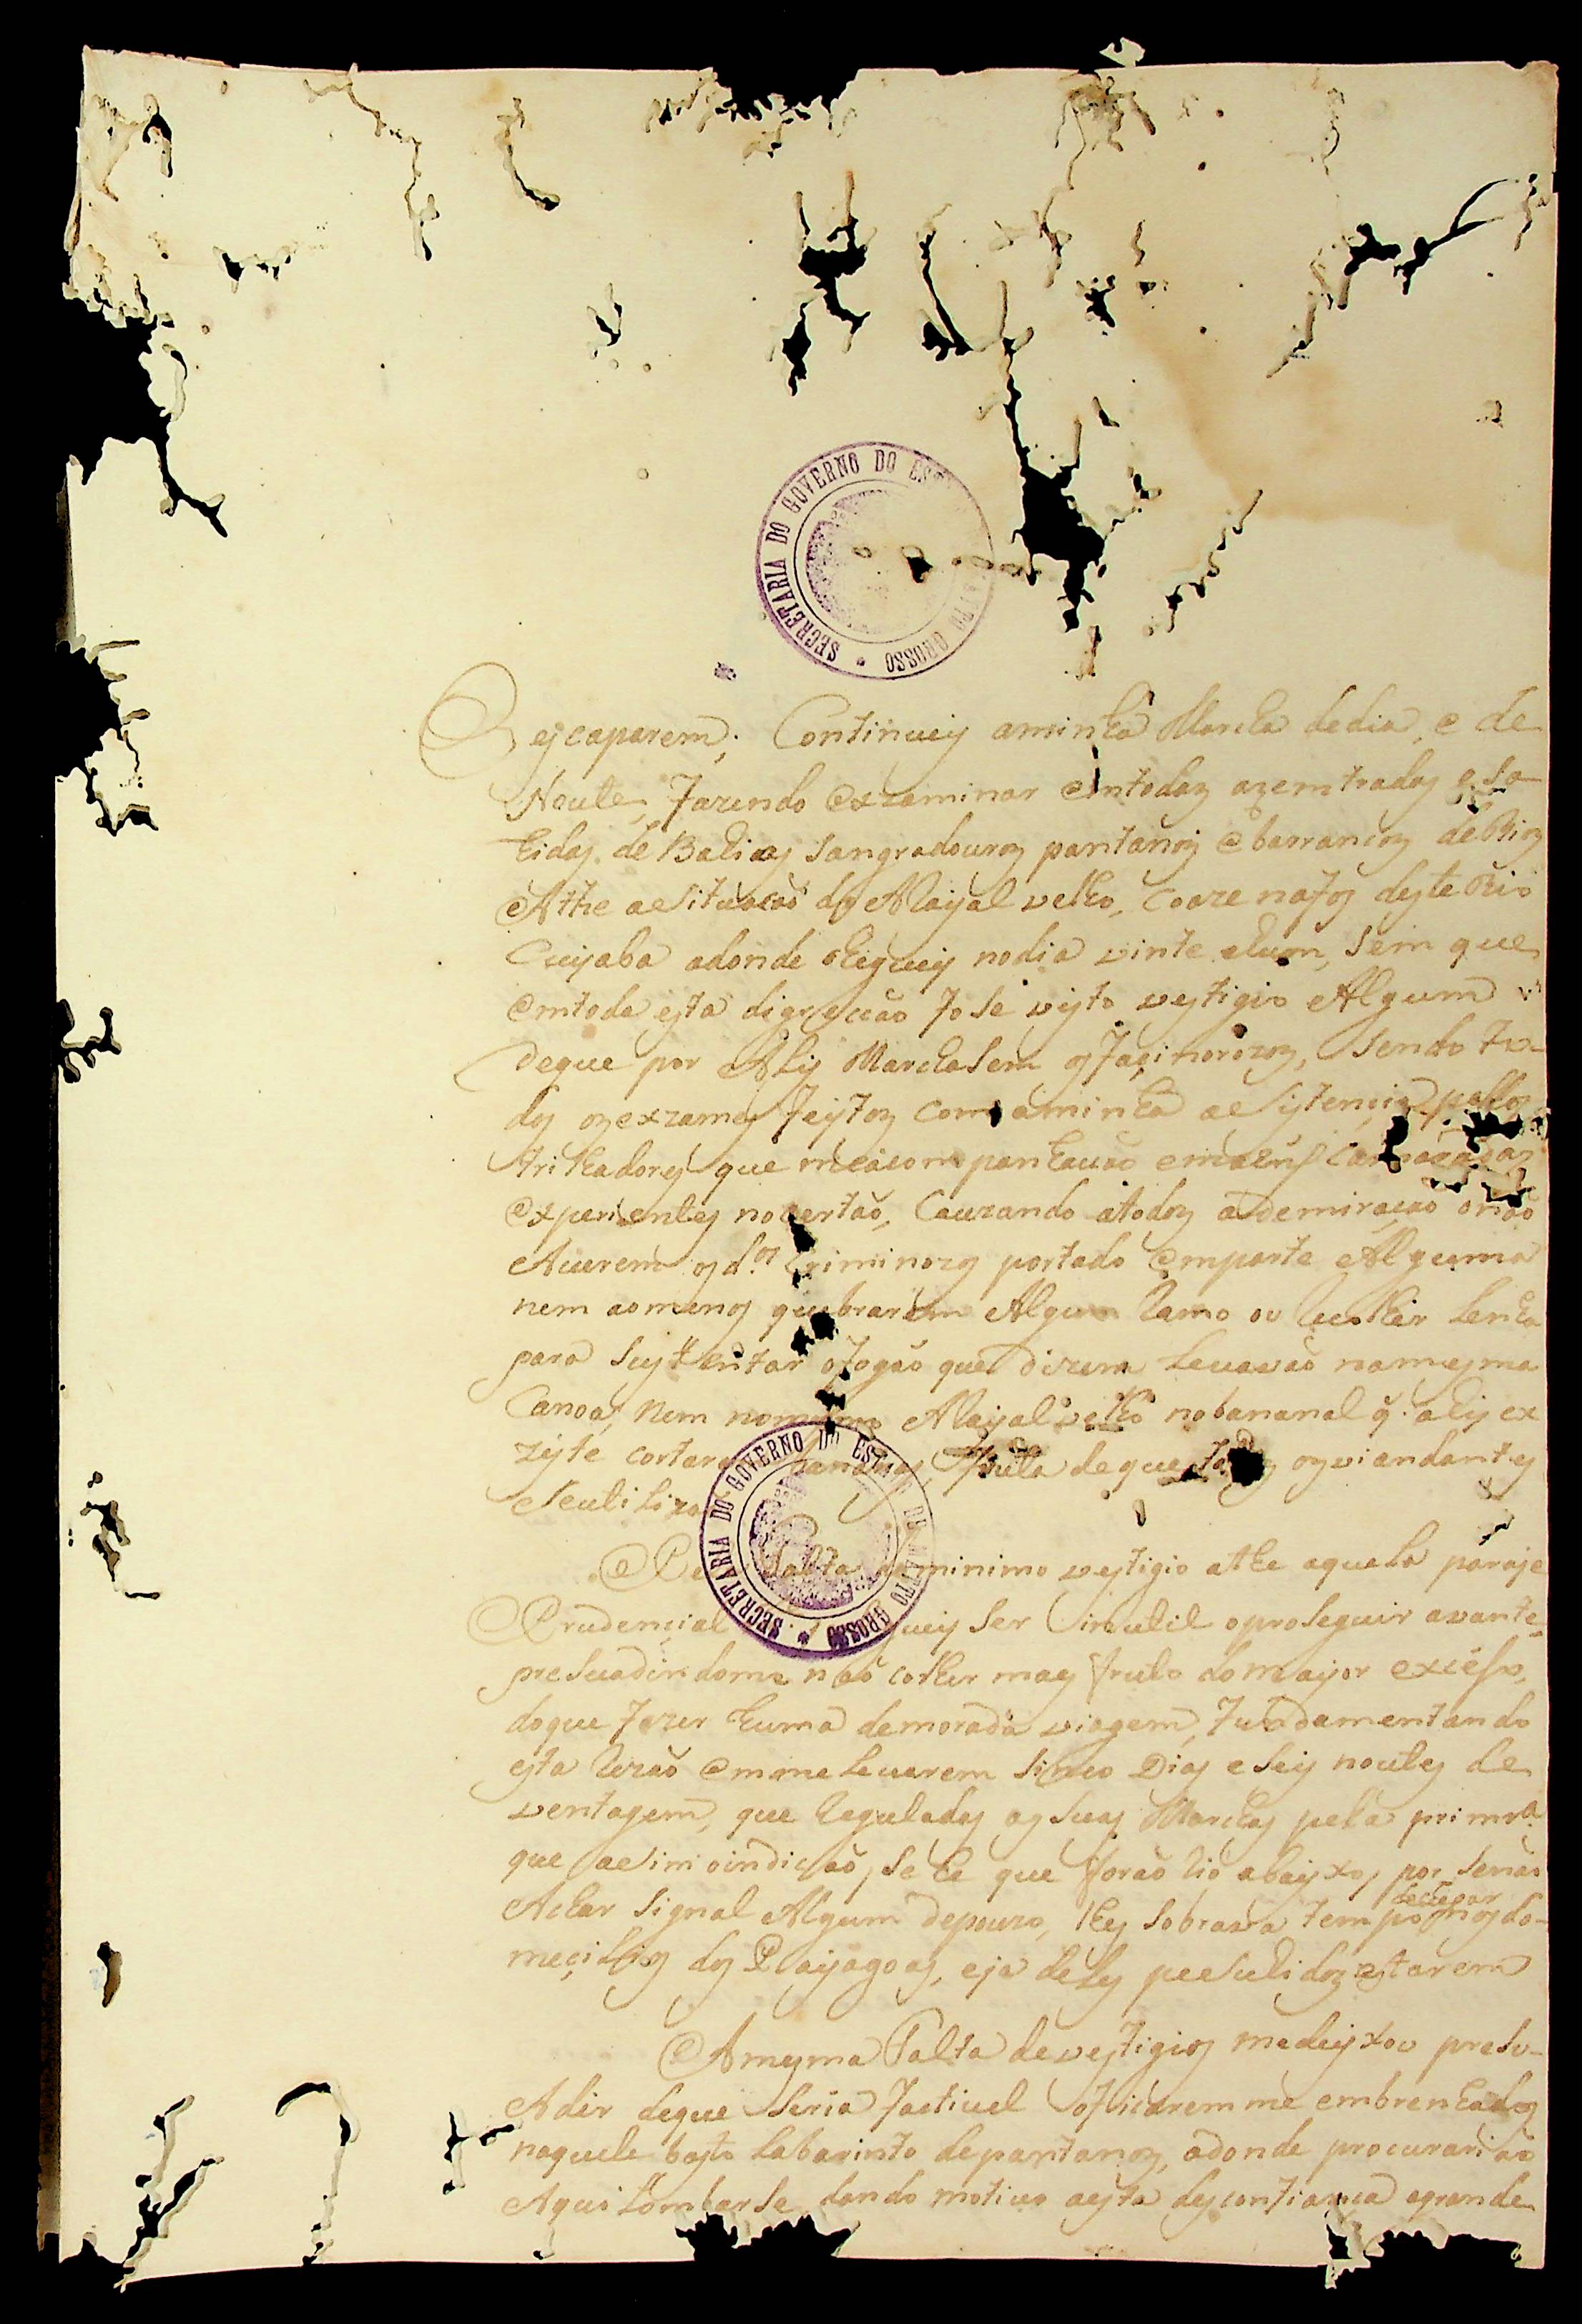 SECRETARIA DO GOVERNO DO ES GROSSO
escaparem; Continuey aminha Marcha dedia, e de
Noute, fazendo Exzaminar emtodas azemtradas e sa-
hidas de Bahias Sangradouros pantanos e barrancos de Rios
Athe a Situacaõ do Arayal velho, Coaze nafos deste Rio
Cuyaba adonde cheguey nodia vinte ehum, Sem que
Emtoda esta digrecaõ fose visto vestigio Algum
deque por Aly Marchasem os façinorozos, Sendo to-
dos os exzames feytos com aminha asistençia pellos
trilhadores que meacompanhavaõ
Experientes nosertaõ, Cauzando atodos ademiraçaõ onaõ
Averem os d.os Criminozos portado emparte Alguma
nem aomenos quebrarem Algum Ramo ou Recolher Lenha
para Sustentar ofogaõ que dizem Levavaõ namesma
Canoa, Nem nomesmo Arayal velho nobananal q. aly ex
ziste cortaraõ bananas, fruta deque todos osviandantes
Seutilizaõ
SECRETARIA DO GOVERNO DO ESTADO DE MATTO GROSSO
falta dominimo vestigio athe aquela paraje
Prudençial guey Ser inutil oproseguir avante,
presuadindome naõ colher mays fruto domayor exceso,
doque fazer huma demorada viagem, fundamentando
esta Rezaõ emme Levarem Sinco Dias e Seis noutes de
ventagem, que Reguladas as Suas Marchas pela primr.a
que asim oindicaõ, Se he que foraõ Rio abayxo, por Senaõ
Achar Signal Algum depouzo, lhes Sobrava tempo de chegar aos do-
meçilios dos Payagoas, eja deles persutidos estarem
Amesma falta devestigios medeyxou presu-
Adir deque Seria factivel oficaremme embrenhados
naquele basto Labarinto depantanos, adonde procurariaõ
Aquilombarse, dando motivo aesta desconfiança agrande